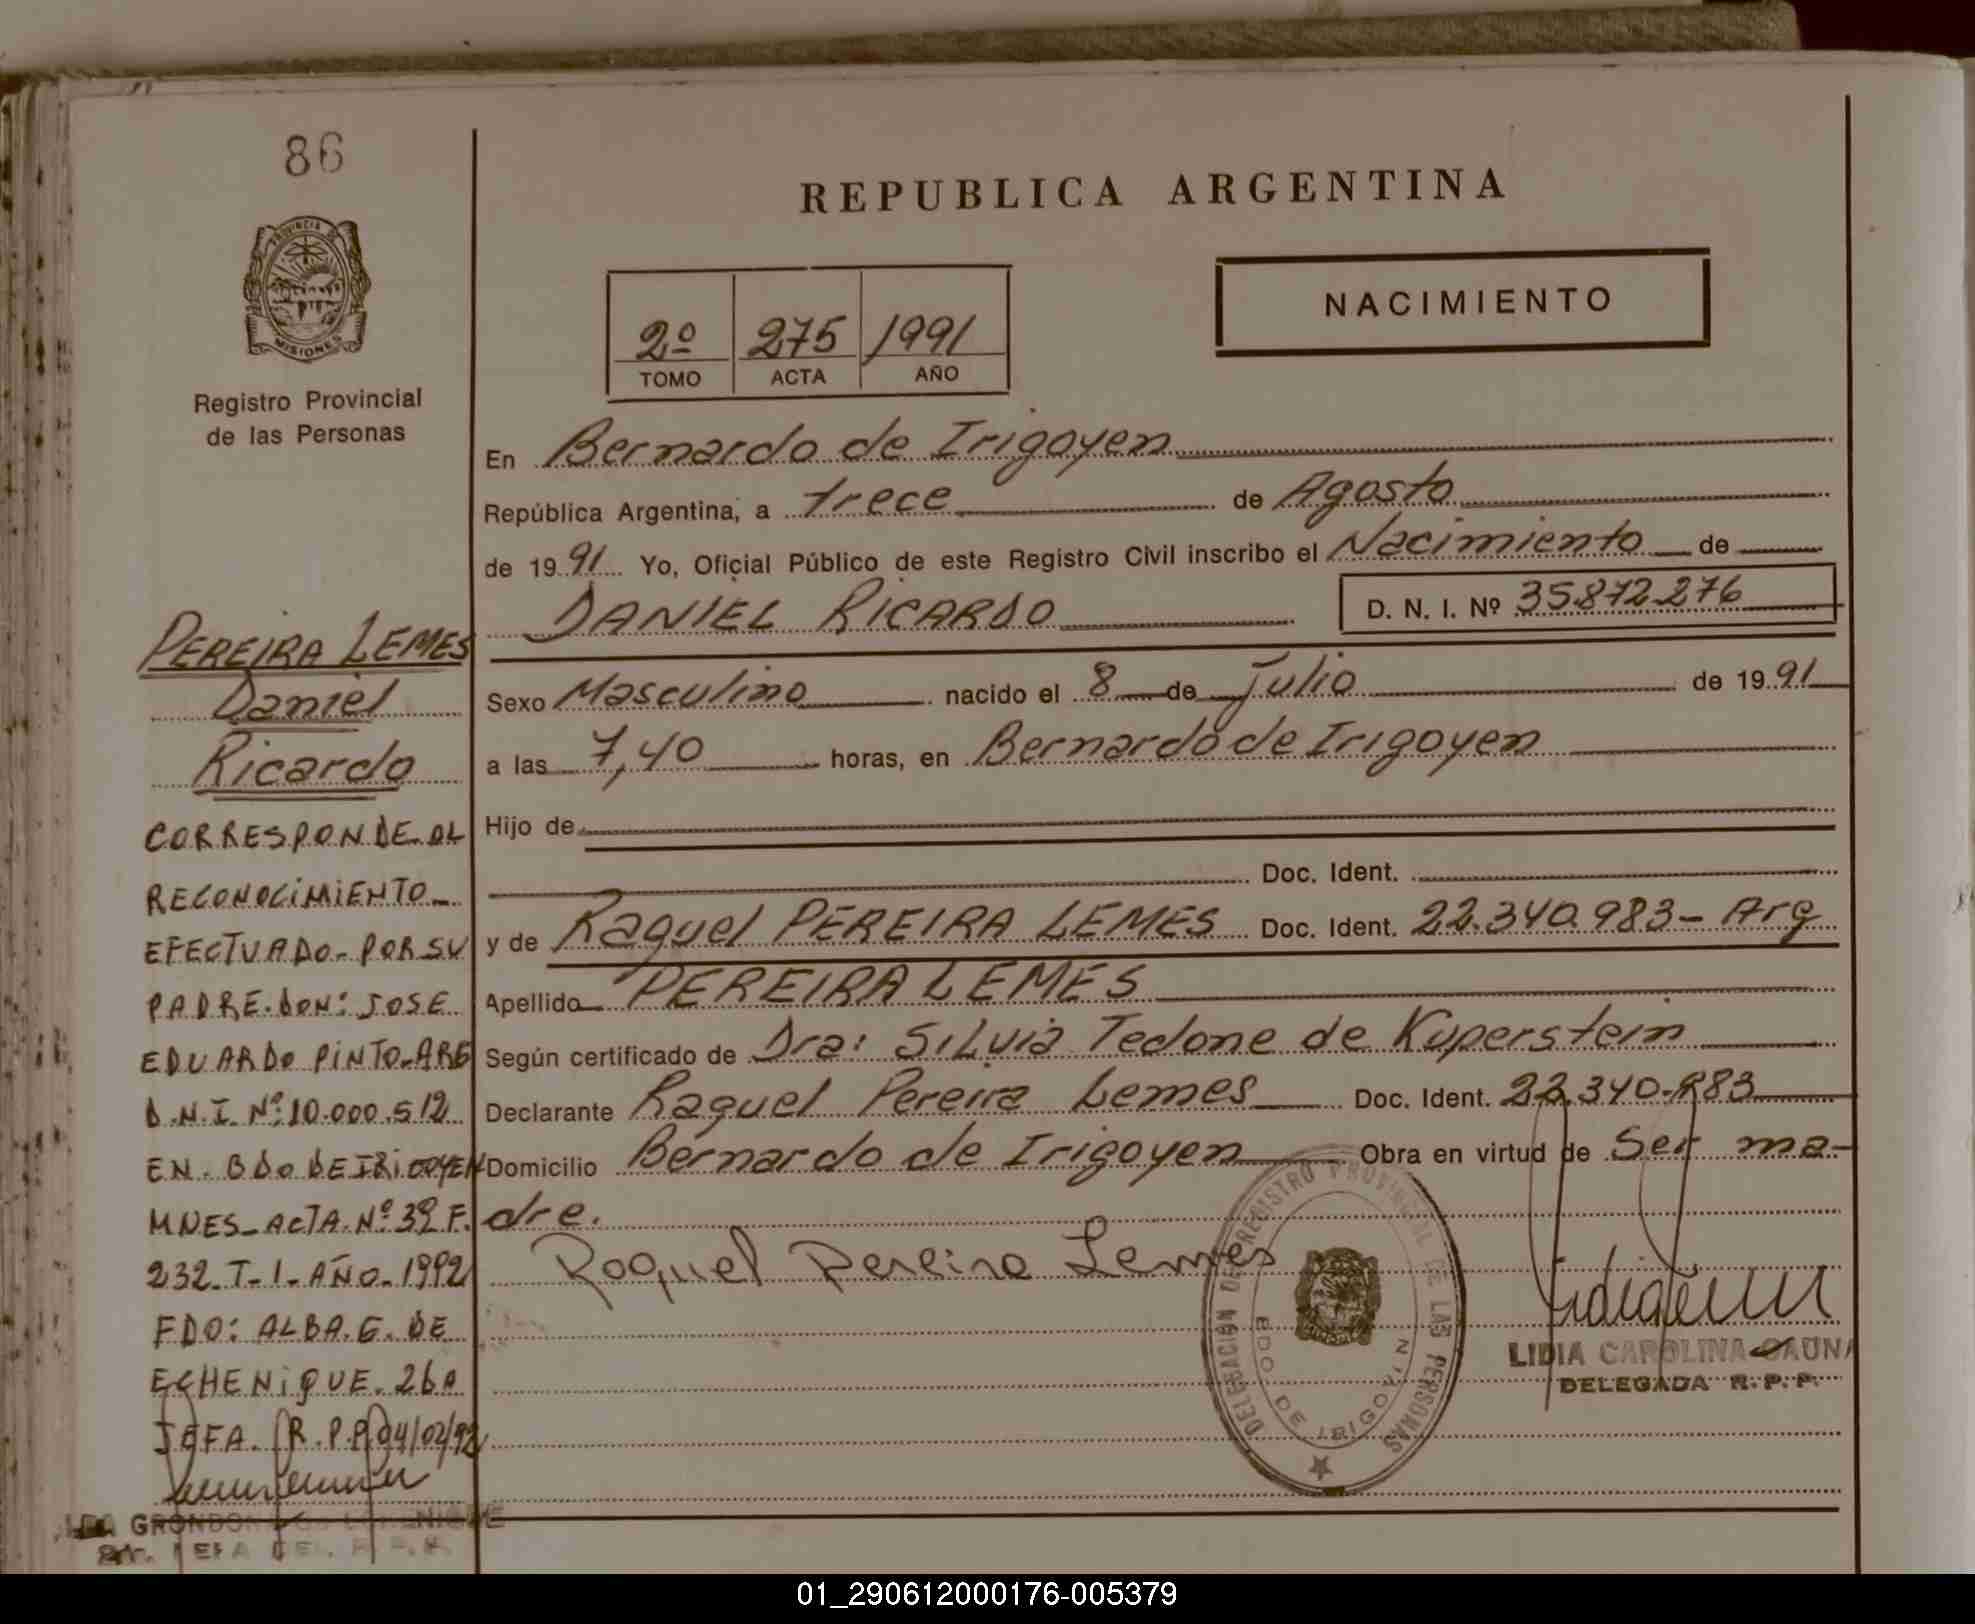 86
PROVINCIA DE
MISIONES
Registro Provincial
de las Personas
PEREIRA LEMES
Daniel
Ricardo
CORRESPONDE AL
RECONOCIMIENTO
EFECTUADO - POR SU
PADRE. DON: JOSE
EDUARDO PINTO-ARG
D.N.I. Nº: 10.000.512
EN. BDO DE IRIGOYEN
MNES- ACTA. Nº 39 F.
232. T-1- AÑO- 1992
FDO: ALBA. G. DE
ECHENIQUE. 2da
JEFA. R.P.P. 04/02/92
REPUBLICA ARGENTINA
NACIMIENTO
2º 275 1991
TOMO ACTA AÑO
En Bernardo de Irigoyen
República Argentina, a trece de Agosto
de 1991 Yo, Oficial Público de este Registro Civil inscribo el Nacimiento de
DANIEL RICARDO D. N. I. Nº 35.872.276
Sexo Masculino nacido el 8 de Julio de 1991
a las 7,40 horas, en Bernardo de Irigoyen
Hijo de
Doc. Ident.
y de Raquel PEREIRA LEMES Doc. Ident. 22.340.983 - Arg
Apellido PEREIRA LEMES
Según certificado de Dra: Silvia Tedone de Kuperstein
Declarante Raquel Pereira Lemes Doc. Ident. 22.340.983
Domicilio Bernardo de Irigoyen Obra en virtud de Ser ma-
dre.
Raquel Pereira Lemes
DELEGACIÓN DEL REGISTRO PROVINCIAL DE LAS PERSONAS
BDO. DE IRIGOYEN
LIDIA CAROLINA GAUNA
DELEGADA R.P.P.
01_290612000176-005379